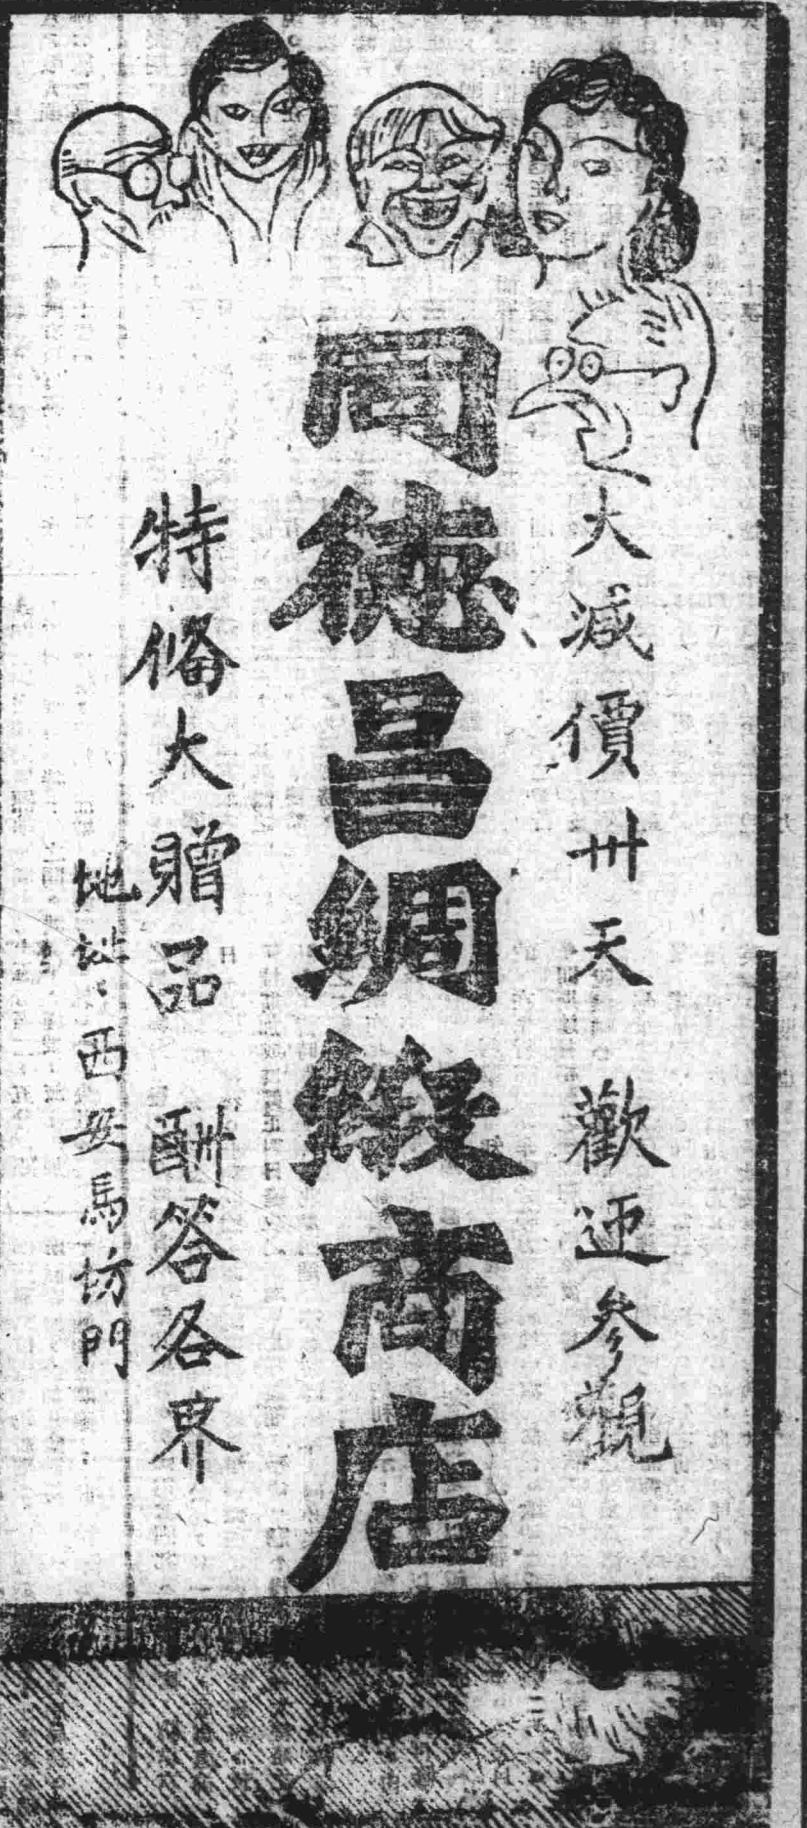 大減價卅天 歡迎參觀
同德昌綢緞商店
特俻大贈品 酬答各界
地址：西安馬坊門